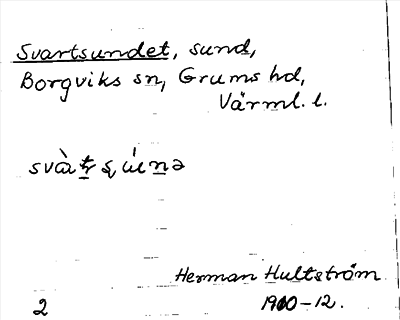 Svartsundet, sund,
Borgviks sn, Grums hd,
Värml. l.
Herman Hultström
1910-12.
2